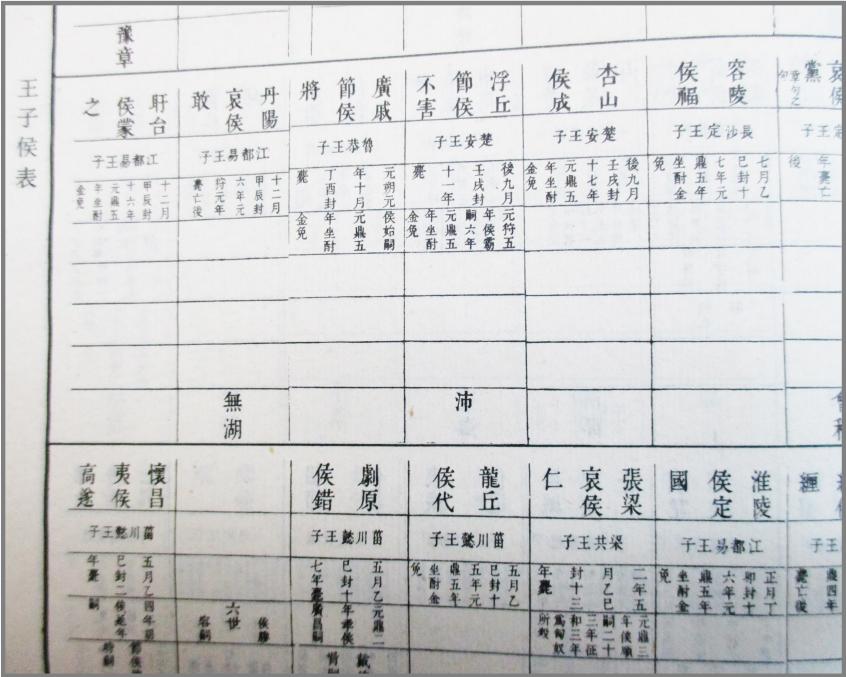 王子侯表
豫章
哀侯
黨
年薨亡
後
容陵
侯福
長沙定王子
七月乙
巳封十
七年元
鼎五年
坐酎金
免
杏山
侯成
楚安王子
後九月
壬戌封
十七年
元鼎五
年坐酎
金免
浮丘
節侯
不害
楚安王子
後九月
壬戌封
十一年
薨
元狩五
年侯霸
嗣六年
元鼎五
年坐酎
金免
沛
廣戚
節侯
將
魯恭王子
元朔元
年十月
丁酉封
薨
侯始嗣
元鼎五
年坐酎
金免
丹陽
哀侯
敢
江都易王子
十二月
甲辰封
六年元
狩元年
薨亡後
無湖
盱台
侯蒙
之
江都易王子
十二月
甲辰封
十六年
元鼎五
年坐酎
金免
鼎四年
薨亡後
淮陵
侯定
國
江都易王子
正月丁
卯封十
六年元
鼎五年
坐酎金
免
張梁
哀侯
仁
梁共王子
二年五
月乙巳
封十三
年薨
元鼎三
年侯順
嗣二十
三年征
和三年
爲匈奴
所殺
龍丘
侯代
菑川懿王子
五月乙
巳封十
五年元
鼎五年
坐酎金
免
劇原
侯錯
菑川懿王子
五月乙
巳封十
七年薨
元鼎二
年孝侯
廣昌嗣
六世
侯勝
容嗣
懷昌
夷侯
高遂
菑川懿王子
五月乙
巳封二
年薨
四年胡
侯延年
嗣